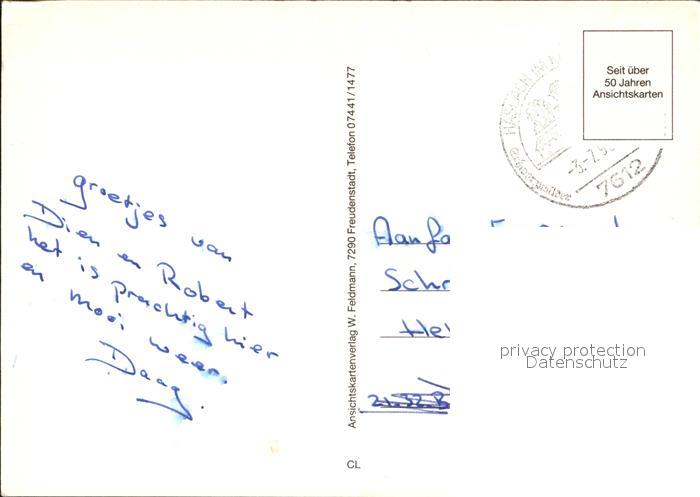 groetjes van
Dien en Robert
het is prachtig hier
en mooi weer.
Daag.
Ansichtskartenverlag W. Feldmann, 7290 Freudenstadt, Telefon 07441/1477
CL
Seit über
50 Jahren
Ansichtskarten
HASLACH IM
-3.-7.
7612
Schr
He
privacy protection
Datenschutz